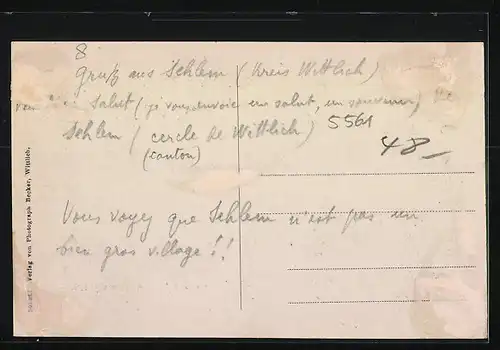 8
Gruß aus Sehlem (Kreis Wittlich)
Salut (je vous envoie un salut, un souvenir) de
Sehlem (cercle de Wittlich) 5561
(canton)
48-
Vous voyez que Sehlem n'est pas un
bien gros village!!
Verlag von Photograph Becker, Wittlich.